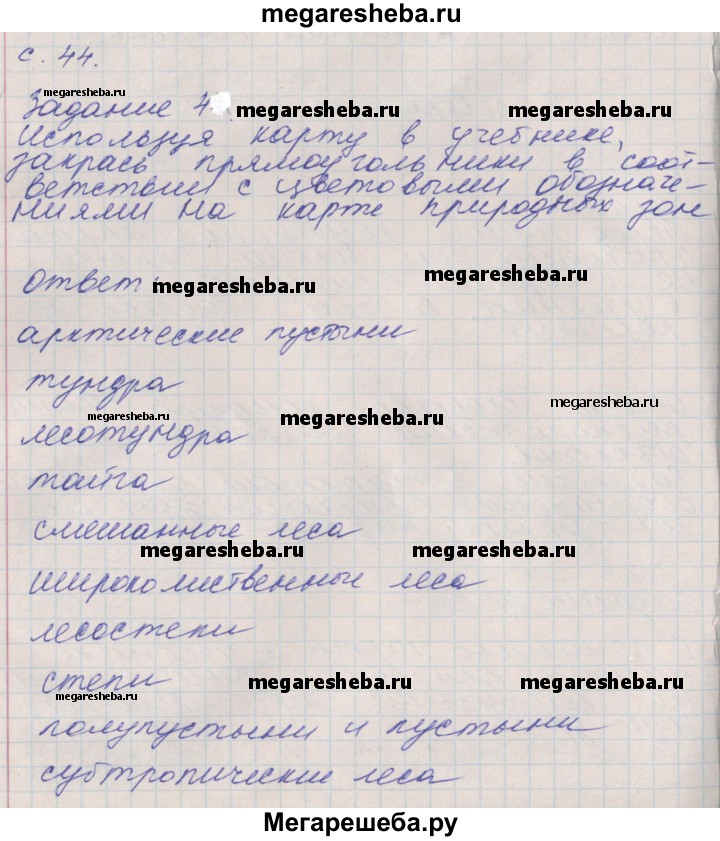 megaresheba.ru
с. 44.
megaresheba.ru
Задание 4 megaresheba.ru megaresheba.ru
Используя карту в учебнике,
закрась прямоугольники в соот-
ветствии с цветовыми обозначе-
ниями на карте природных зон
Ответ: megaresheba.ru megaresheba.ru
арктические пустыни
тундра
megaresheba.ru megaresheba.ru megaresheba.ru
лесотундра
тайга
смешанные леса
megaresheba.ru megaresheba.ru
широколиственные леса
лесостепи
степи megaresheba.ru megaresheba.ru
megaresheba.ru
полупустыни и пустыни
субтропические леса
Мегарешеба.ру